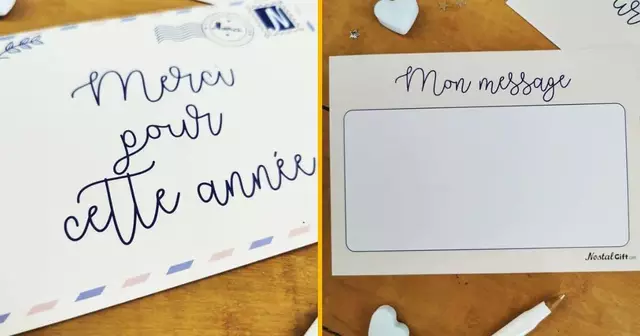 Merci
pour
cette année
N
Mon message
NostalGift.com